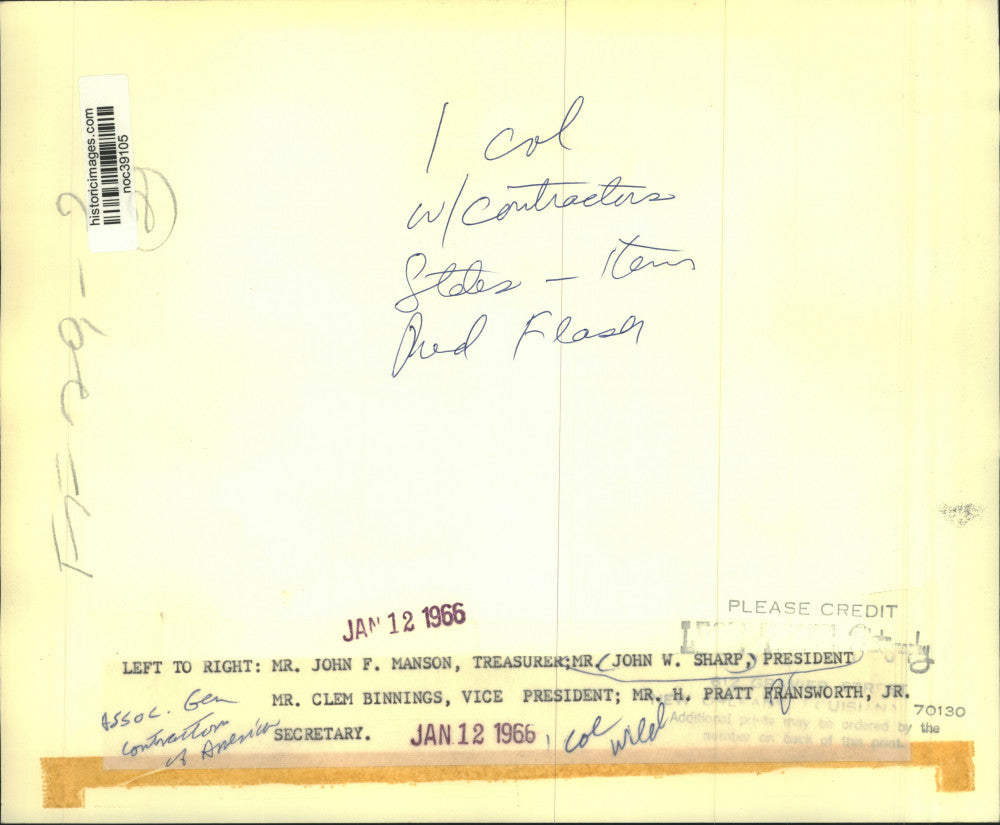 historicimages.com
noc39105
2
1 col
w/contractors
States - Item
Red Flash
JAN 12 1966
PLEASE CREDIT
LEFT TO RIGHT: MR. JOHN F. MANSON, TREASURER;MR. JOHN W. SHARP, PRESIDENT
MR. CLEM BINNINGS, VICE PRESIDENT; MR. H. PRATT FRANSWORTH, JR.
SECRETARY.
Assoc. Gen
Contractors
of America
JAN 12 1966
1 col
70130
Additional prints may be ordered by the
number on back of this print.